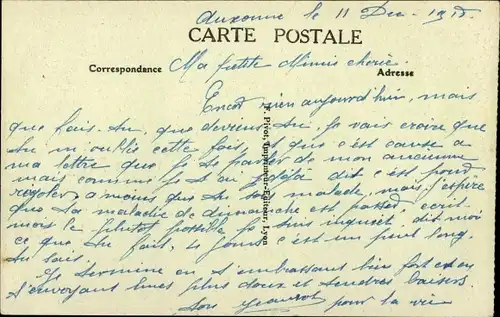 Auxonne le 11 Dec. 1915.
CARTE POSTALE
Correspondance
Adresse
Ma petite Mimie chérie.
Encor rien aujourd'hui, mais
que fais-tu, que deviens-tu, je vais croire que
tu m'oublie cette fois, que c'est cause a
ma lettre que je te parler de mon ancienne
mais comme je t'ai déjà dit c'est pour
rigoler, a moins que tu soi malade, mais j'espère
que ta maladie de dimanche est passé, écrit
mois le plutot possible je suis inquiet dit moi
ce que tu fait, 4 jours c'est un peut long,
tu sais.
Je termine en t'embrassant bien fort et en
t'envoyant mes plus doux et tendres baisers
Ton pour la vie
P. Pivot, Imprimeur-Editeur, Lyon